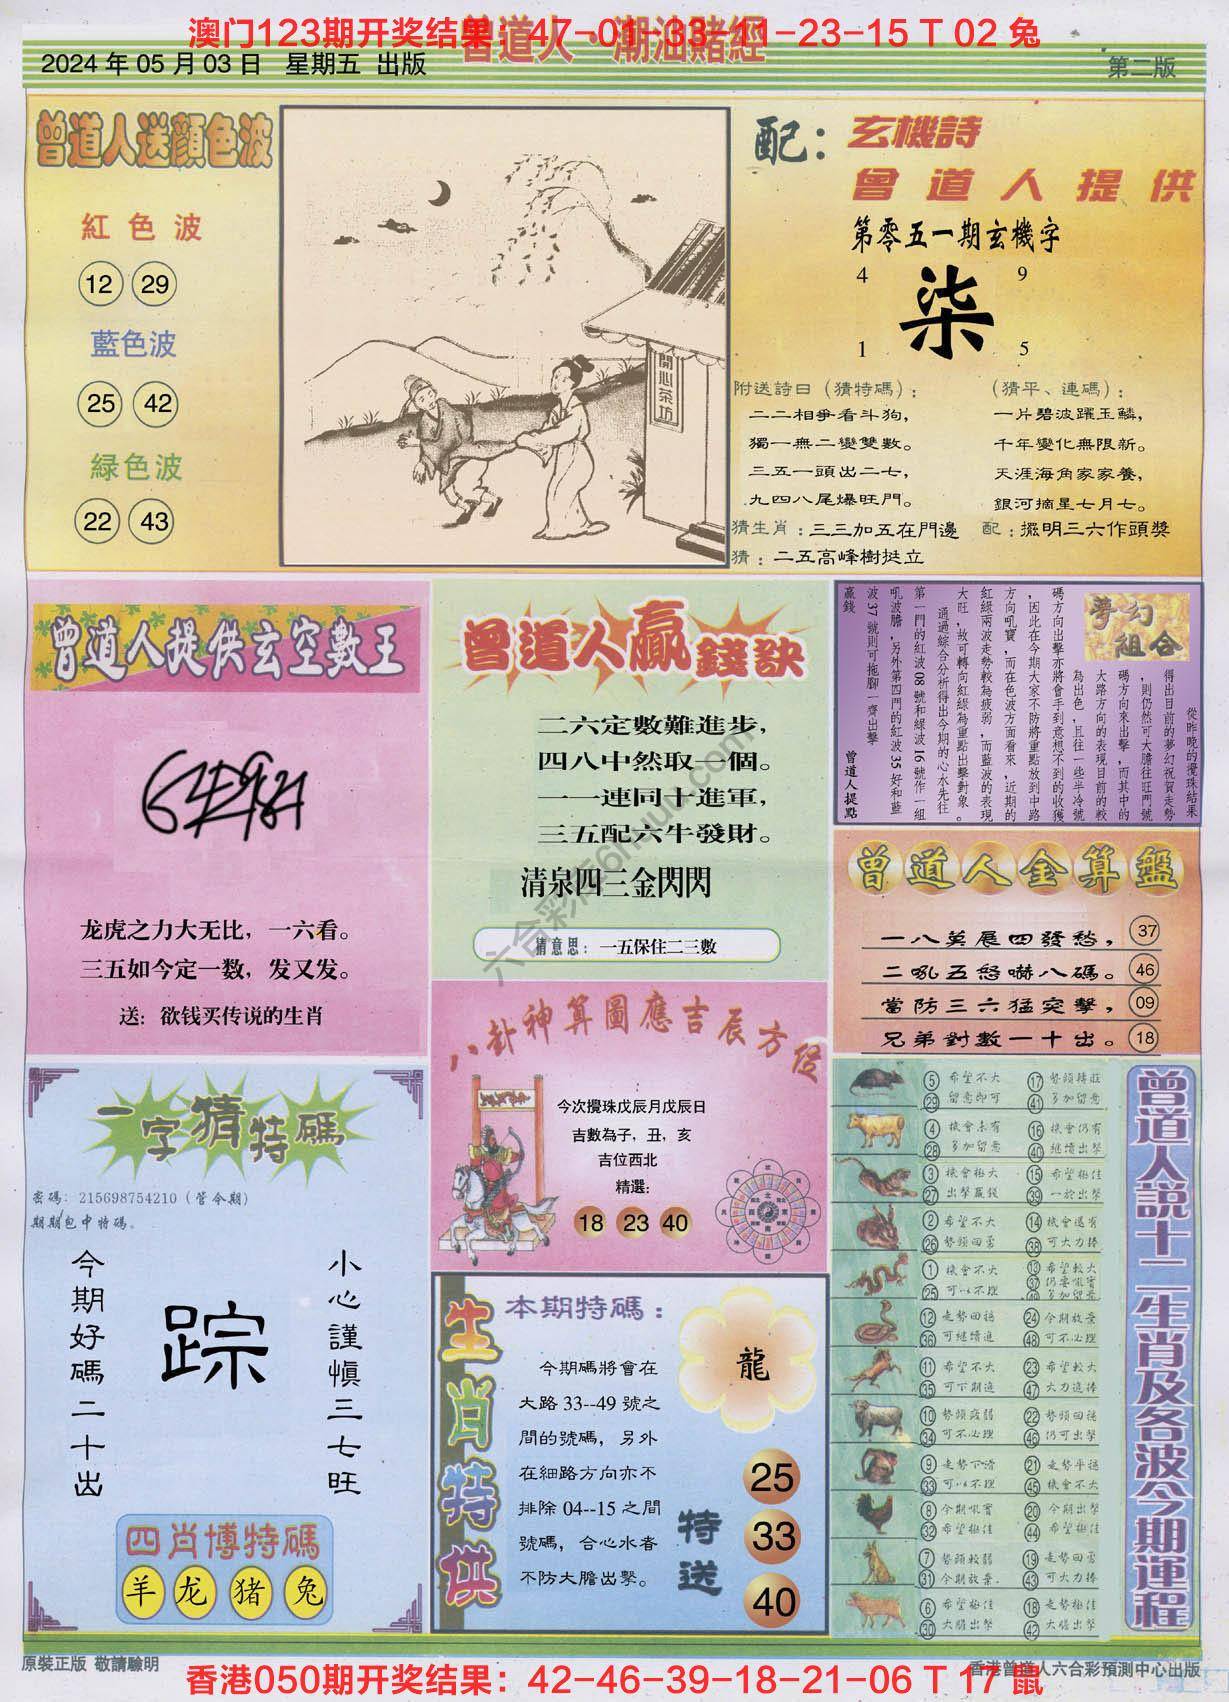 澳门123期开奖结果：47-01-33-11-23-15 T 02 兔
曾道人·潮汕賭經
2024 年 05 月 03 日 星期五 出版
第二版
曾道人送顔色波
紅色波
12 29
藍色波
25 42
緑色波
22 43
開心茶坊
配：玄機詩
曾道人提供
第零五一期玄機字
4 9
柒
1 5
附送詩曰（猜特碼）：
二二相爭看斗狗，
獨一無二變雙數。
三五一頭出二七，
九四八尾爆旺門。
（猜平、連碼）：
一片碧波躍玉鱗，
千年變化無限新。
天涯海角家家養，
銀河摘星七月七。
猜生肖：三三加五在門邊
配：擺明三六作頭獎
猜：二五高峰樹挺立
曾道人提供玄空數王
龙虎之力大无比，一六看。
三五如今定一数，发又发。
送：欲钱买传说的生肖
曾道人贏錢訣
二六定數難進步，
四八中然取一個。
一一連同十進軍，
三五配六牛發財。
清泉四三金閃閃
猜意思：一五保住二三數
夢幻組合
從昨晚的攪珠結果
得出目前的夢幻祝賀走勢
，則仍然可大膽往旺門號
碼方向來出擊，而其中的
大路方向的表現目前的較
為出色，且往一些半冷號
碼方向出擊亦將會手到意想不到的收獲
，因此在今期大家不防將重點放到中路
方向吼寶，而在色波方面看來，近期的
紅綠兩波走勢較為疲弱，而藍波的表現
大旺，故可轉向紅綠為重點出擊對象。
通過綜合分析得出今期的心水先往
第一門的紅波 08 號和綠波 16 號作一組
吼波膽，另外第四門的紅波 35 好和藍
波 37 號則可拖腳一齊出擊
贏錢
曾道人提點
曾道人金算盤
一八英展四發愁， 37
二吼五怒嚇八碼。 46
當防三六猛突擊， 09
兄弟對數一十出。 18
八卦神算圖應吉辰方位
今次攪珠戊辰月戊辰日
吉數為子，丑，亥
吉位西北
精選：
18 23 40
一字猜特碼
密碼：215698754210（管今期）
期期包中特碼。
今期好碼二十出
踪
小心謹慎三七旺
四肖博特碼
羊 龙 猪 兔
生肖特供
本期特碼：
龍
今期碼將會在
大路 33--49 號之
間的號碼，另外
在細路方向亦不
排除 04--15 之間
號碼，合心水者
不防大膽出擊。
特送
25
33
40
曾道人説十二生肖及各波今期運程
5 希望不大 17 勢頭轉旺
29 留意即可 41 多加留意
4 機會未有 16 機會仍有
28 多加留意 40 繼續出擊
3 機會極大 15 希望極佳
27 出擊贏錢 39 一於出擊
2 希望不大 14 機會還有
26 勢頭回勇 38 可大力捧
1 機會不大 13 希望較大
25 可以不理 37 仍要吼寶
多加留意
12 走勢回穩 24 今期放棄
36 可繼續追 48 可不必理
11 希望不大 23 希望較大
35 可下期追 47 大力追捧
10 勢頭疲弱 22 勢頭回穩
34 可不必理 46 仍可出擊
9 走勢下滑 21 走勢平穩
33 可以不理 45 機會不大
8 今期吼寶 20 今期出擊
32 希望極佳 44 希望極佳
7 勢頭較弱 19 走勢回勇
31 今期放棄 43 可大力捧
6 希望極佳 18 走勢極佳
30 大膽出擊 42 大膽出擊
六合彩库6huu.com
原裝正版 敬請驗明
香港曾道人六合彩預測中心出版
香港050期开奖结果：42-46-39-18-21-06 T 17 鼠